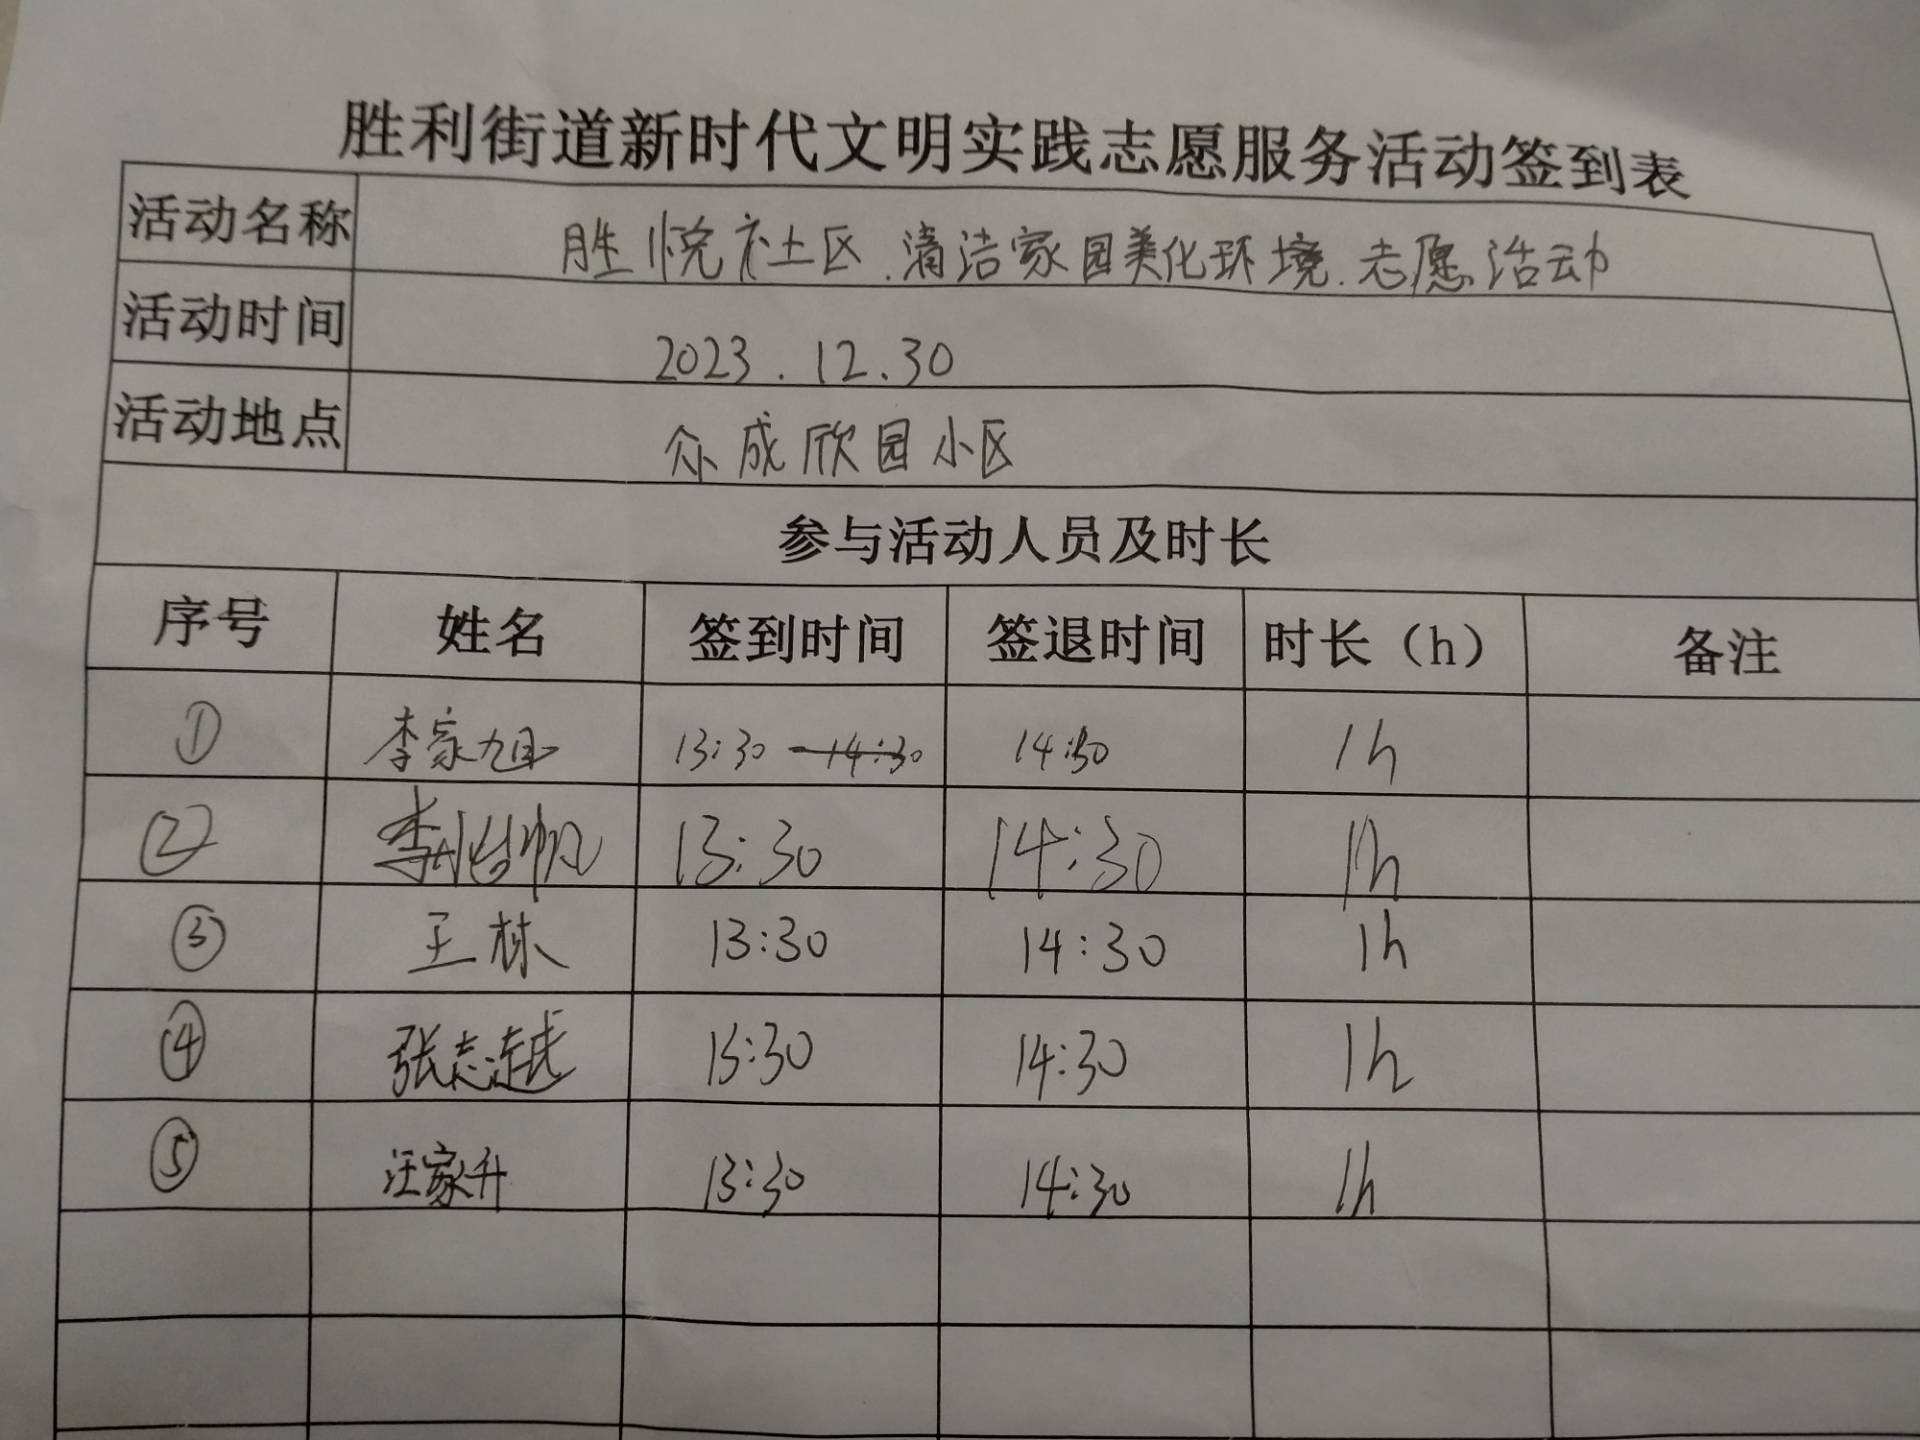 胜利街道新时代文明实践志愿服务活动签到表
活动名称 胜悦社区.清洁家园美化环境.志愿活动
活动时间 2023.12.30
活动地点 众成欣园小区
参与活动人员及时长
序号 姓名 签到时间 签退时间 时长（h） 备注
① 李家旭 13:30 14:30 1h
② 13:30 14:30 1h
③ 王栋 13:30 14:30 1h
④ 张志越 13:30 14:30 1h
⑤ 汪家升 13:30 14:30 1h